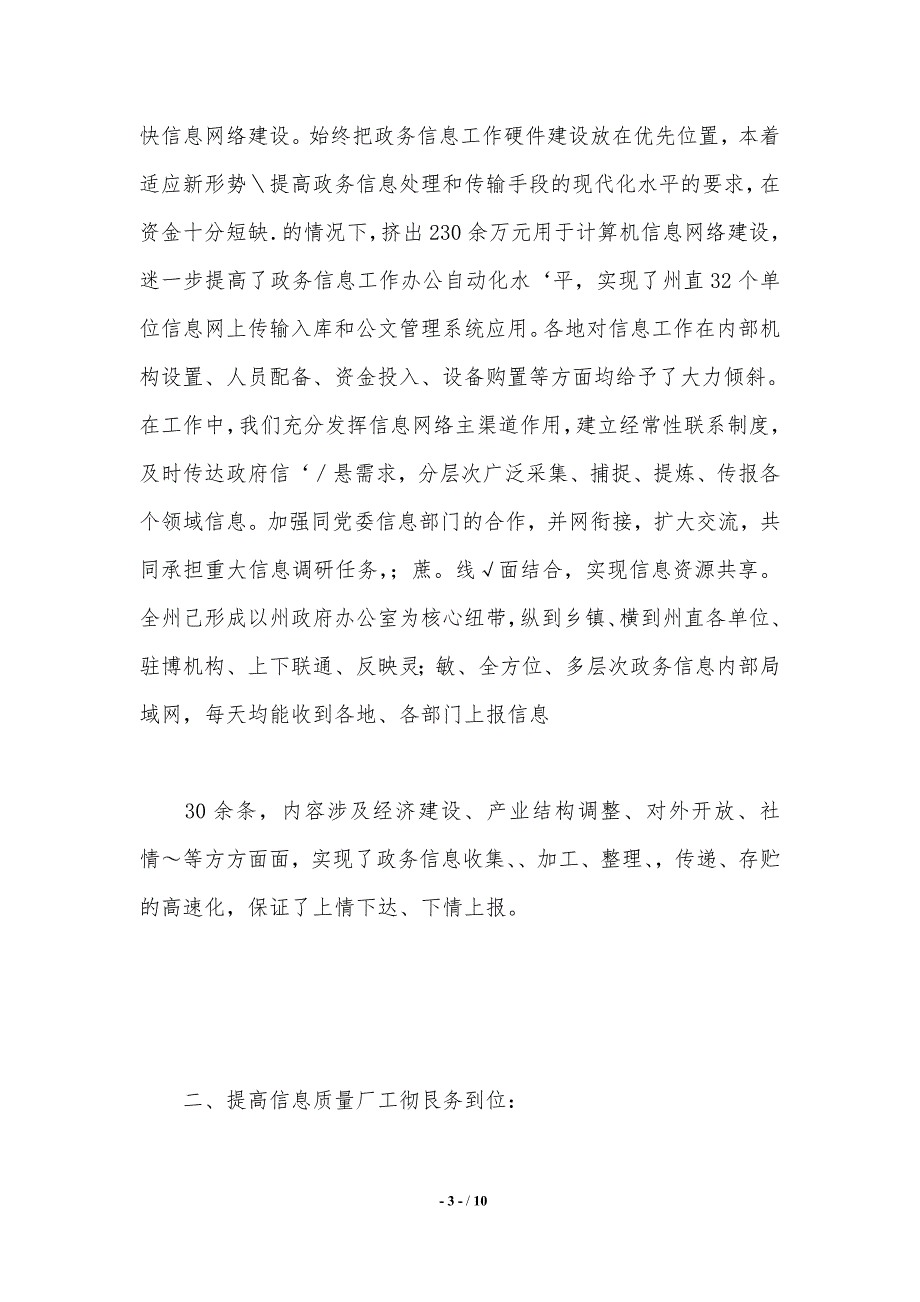 快信息网络建设。始终把政务信息工作硬件建设放在优先位置，本着
适应新形势＼提高政务信息处理和传输手段的现代化水平的要求，在
资金十分短缺.的情况下，挤出 230 余万元用于计算机信息网络建设，
迷一步提高了政务信息工作办公自动化水‘平，实现了州直 32 个单
位信息网上传输入库和公文管理系统应用。各地对信息工作在内部机
构设置、人员配备、资金投入、设备购置等方面均给予了大力倾斜。
在工作中，我们充分发挥信息网络主渠道作用，建立经常性联系制度，
及时传达政府信‘／悬需求，分层次广泛采集、捕捉、提炼、传报各
个领域信息。加强同党委信息部门的合作，并网衔接，扩大交流，共
同承担重大信息调研任务，；蔗。线√面结合，实现信息资源共享。
全州己形成以州政府办公室为核心纽带，纵到乡镇、横到州直各单位、
驻博机构、上下联通、反映灵；敏、全方位、多层次政务信息内部局
域网，每天均能收到各地、各部门上报信息
30 余条，内容涉及经济建设、产业结构调整、对外开放、社
情～等方方面面，实现了政务信息收集、、加工、整理、，传递、存贮
的高速化，保证了上情下达、下情上报。
二、提高信息质量厂工彻艮务到位：
- 3 - / 10